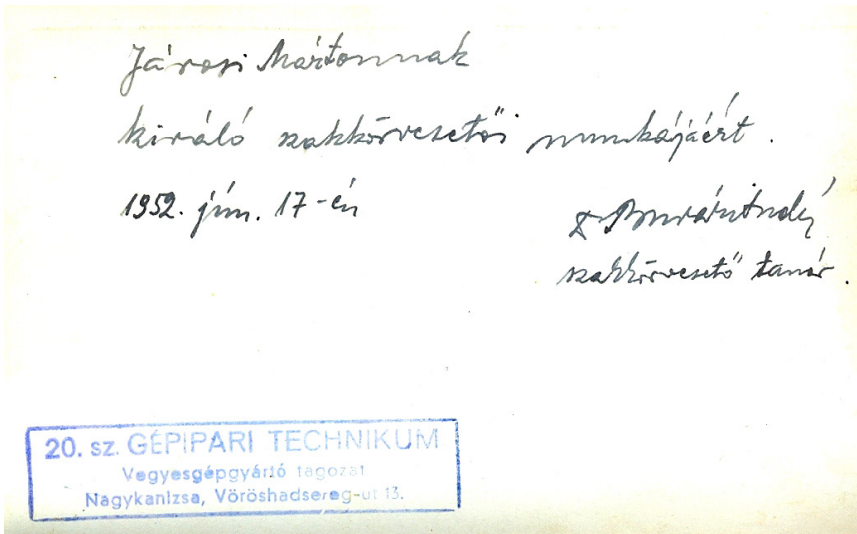 Járosi Mártonnak
királó szakkörvezetői munkájáért.
1952. jún. 17-én
szakkörvezető tanár.
20. sz. GÉPIPARI TECHNIKUM
Vegyesgépgyártó tagozat
Nagykanizsa, Vöröshadsereg-ut 13.